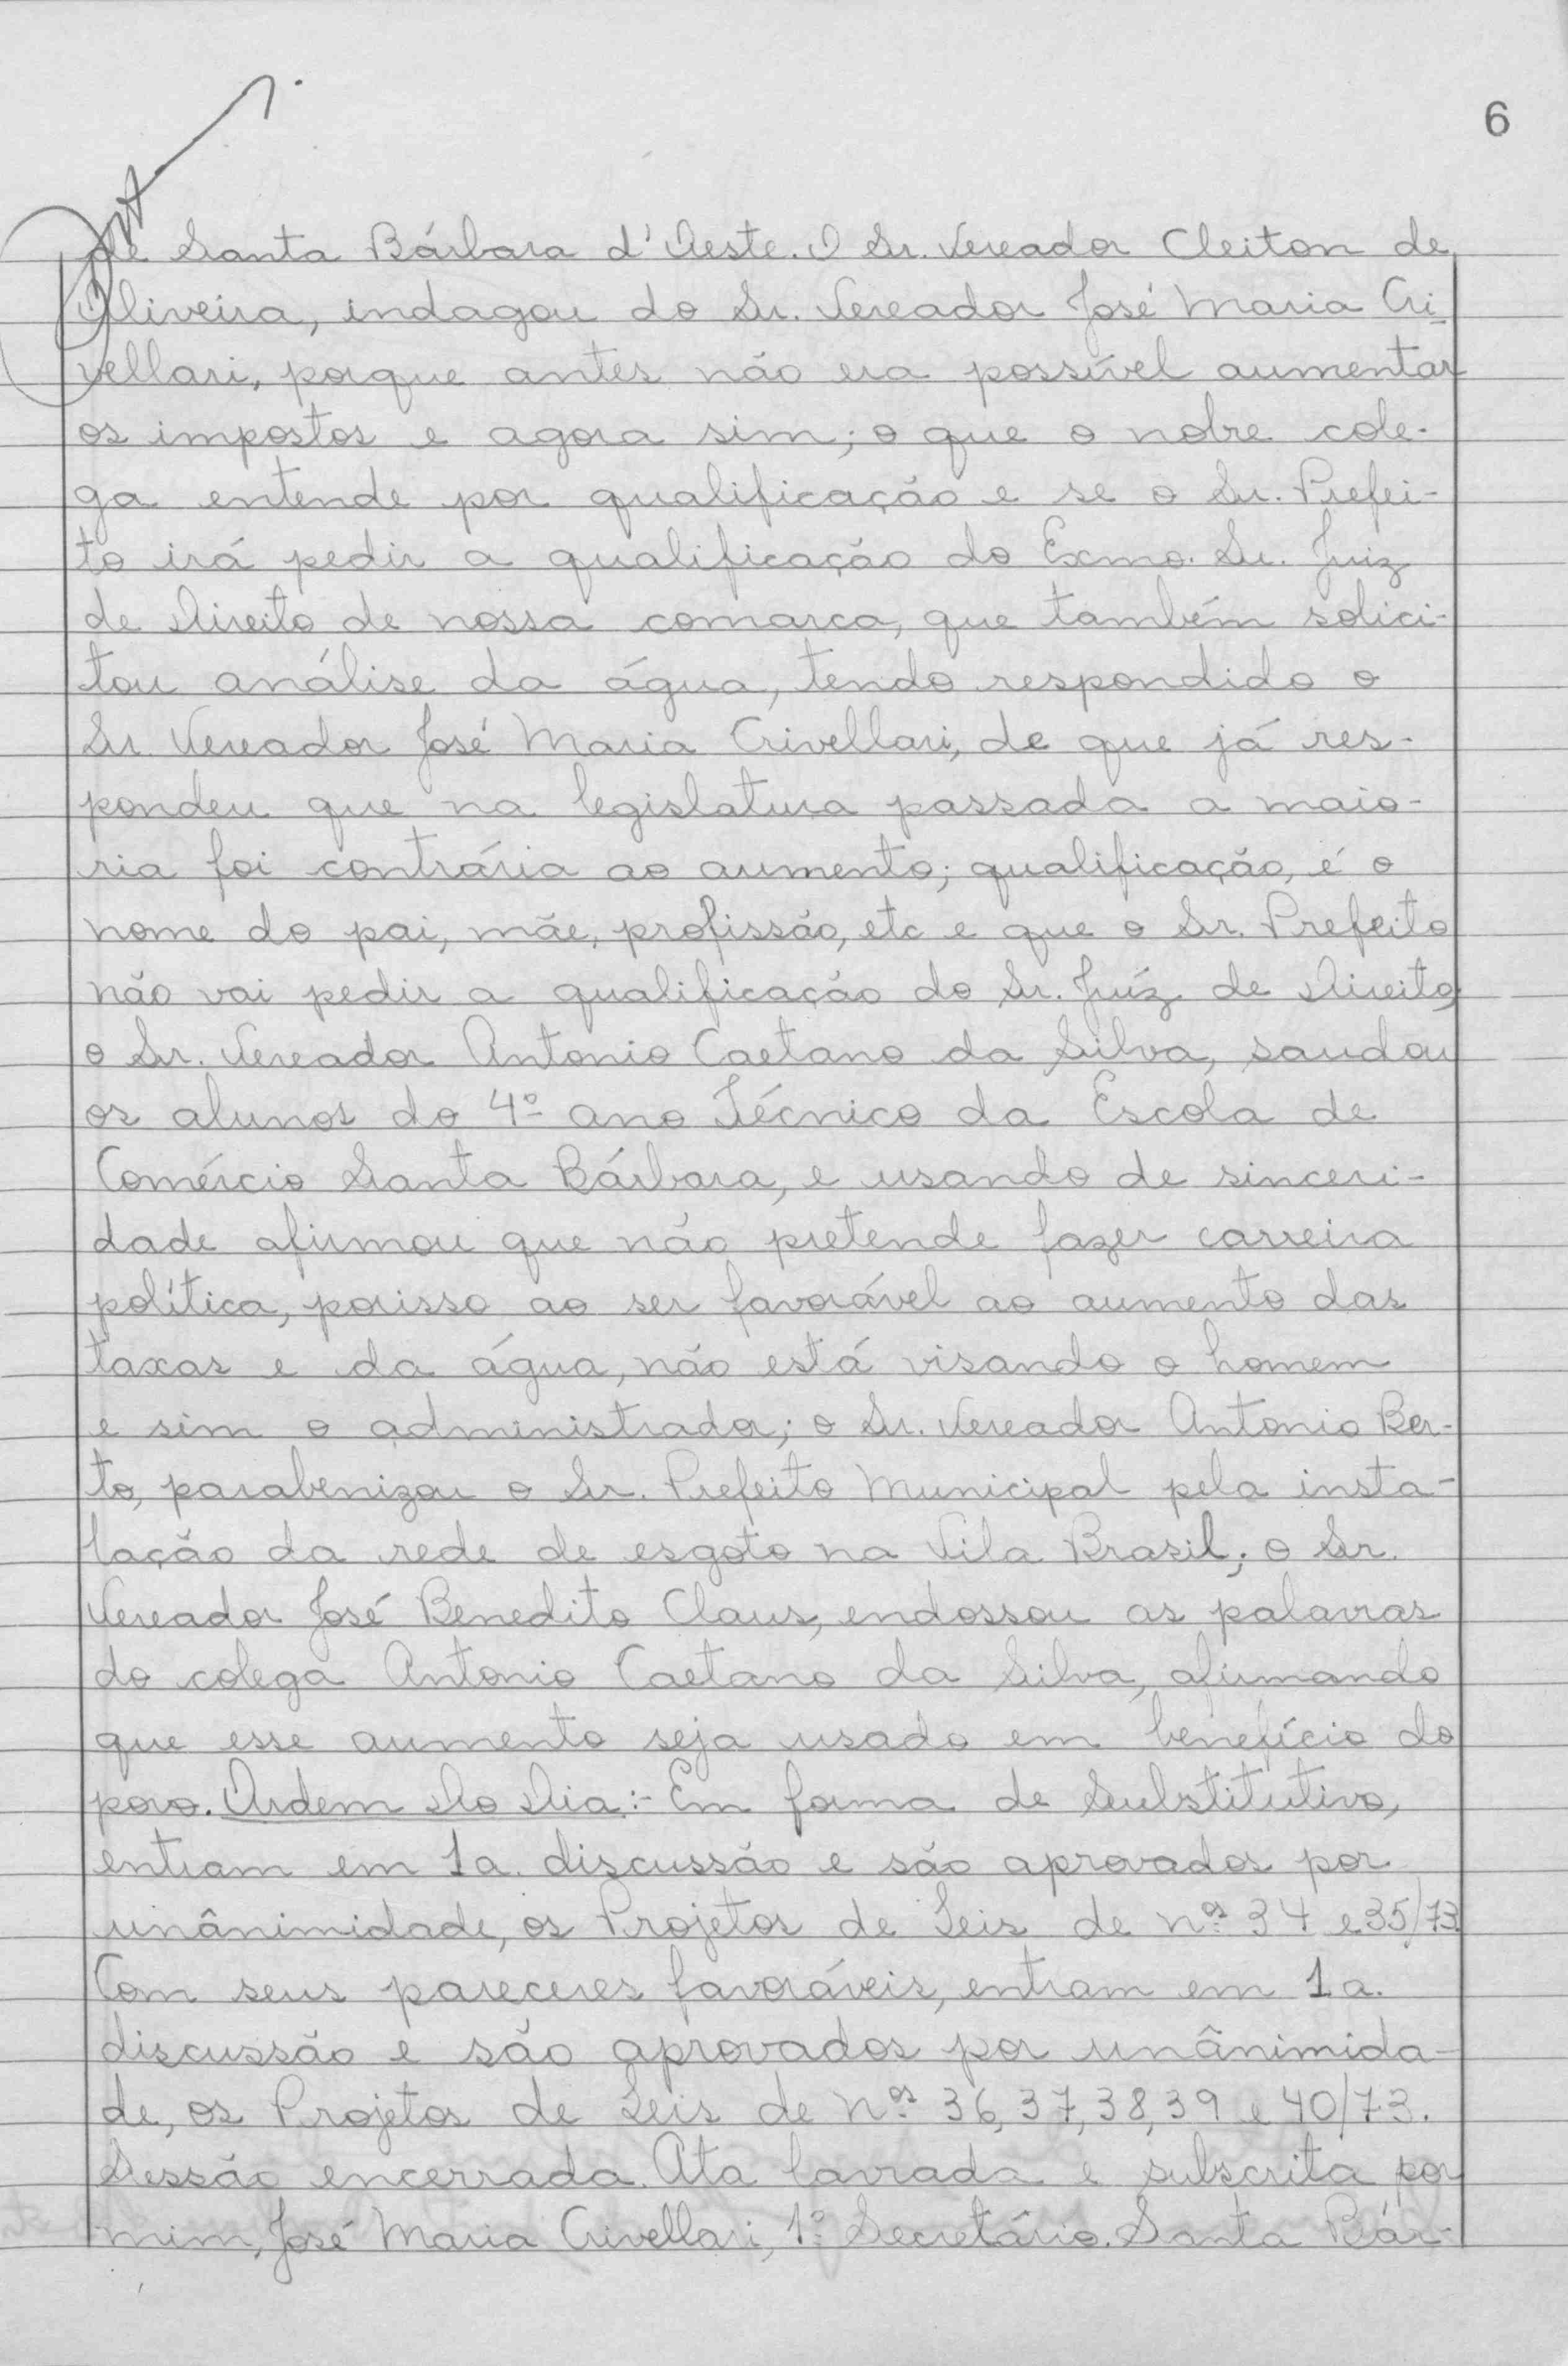 6
de Santa Bárbara d'Oeste. O Sr. Vereador Cleiton de
Oliveira, indagou do Sr. Vereador José Maria Cri-
vellari, porque antes não era possível aumentar
os impostos e agora sim; o que o nobre cole-
ga entende por qualificação e se o Sr. Prefei-
to irá pedir a qualificação do Exmo. Sr. Juiz
de Direito de nossa comarca, que também solici-
tou análise da água, tendo respondido o
Sr. Vereador José Maria Crivellari, de que já res-
pondeu que na legislatura passada a maio-
ria foi contrária ao aumento; qualificação, é o
nome do pai, mãe, profissão, etc e que o Sr. Prefeito
não vai pedir a qualificação do Sr. Juíz de Direito;
o Sr. Vereador Antonio Caetano da Silva, saudou
os alunos do 4º ano Técnico da Escola de
Comércio Santa Bárbara, e usando de sinceri-
dade afirmou que não pretende fazer carreira
política, porisso ao ser favorável ao aumento das
taxas e da água, não está visando o homem
e sim o administrador; o Sr. Vereador Antonio Ber-
to, parabenizou o Sr. Prefeito Municipal pela insta-
lação da rede de esgoto na Vila Brasil; o Sr.
Vereador José Benedito Claus, endossou as palavras
do colega Antonio Caetano da Silva, afirmando
que esse aumento seja usado em benefício do
povo. Ordem Do Dia:- Em forma de Substitutivo,
entram em 1a. discussão e são aprovados por
unânimidade, os Projetos de Leis de nos. 34 e 35/73.
Com seus pareceres favoráveis, entram em 1a.
discussão e são aprovados por unânimida-
de, os Projetos de Leis de nos. 36, 37, 38, 39 e 40/73.
Sessão encerrada. Ata lavrada e subscrita por
mim, José Maria Crivellari, 1º Secretário. Santa Bár-